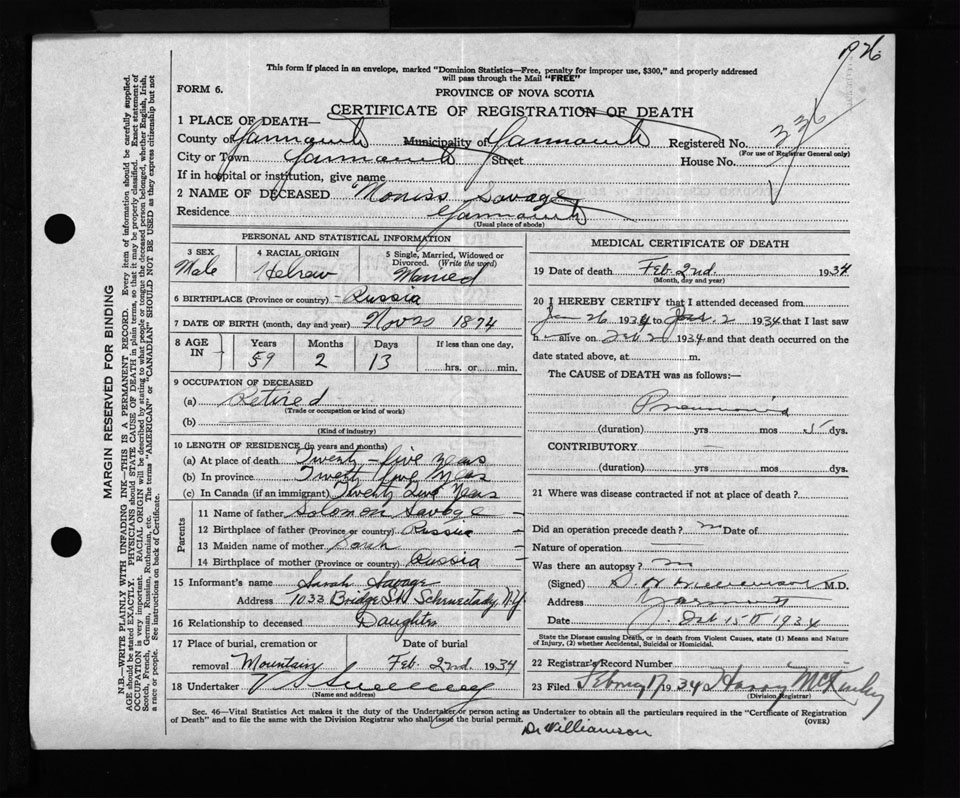 1926
This form if placed in an envelope, marked "Dominion Statistics—Free, penalty for improper use, $300," and properly addressed
will pass through the Mail "FREE"
FORM 6.
PROVINCE OF NOVA SCOTIA
CERTIFICATE OF REGISTRATION OF DEATH
336
1 PLACE OF DEATH—
County of Yarmouth Municipality of Yarmouth Registered No.
(For use of Registrar General only)
City or Town Yarmouth Street House No.
If in hospital or institution, give name
2 NAME OF DECEASED Moniss Savage
Residence Yarmouth
(Usual place of abode)
MARGIN RESERVED FOR BINDING
N.B.—WRITE PLAINLY WITH UNFADING INK—THIS IS A PERMANENT RECORD. Every item of information should be carefully supplied.
AGE should be stated EXACTLY. PHYSICIANS should STATE CAUSE OF DEATH in plain terms, so that it may be properly classified. Exact statement of
OCCUPATION is very important. RACIAL ORIGIN will be described by stating to what people or tongue the deceased person belonged, whether English, Irish,
Scotch, French, German, Russian, Ruthenian, etc. The terms "AMERICAN" or "CANADIAN" SHOULD NOT BE USED as they express citizenship but not
a race or people. See instructions on back of Certificate.
PERSONAL AND STATISTICAL INFORMATION
3 SEX
Male
4 RACIAL ORIGIN
Hebrew
5 Single, Married, Widowed or
Divorced. (Write the word)
Married
6 BIRTHPLACE (Province or country) Russia
7 DATE OF BIRTH (month, day and year) Nov 20 1874
8 AGE
IN
Years Months Days If less than one day,
59 2 13 hrs. or min.
9 OCCUPATION OF DECEASED
(a) Retired
(Trade or occupation or kind of work)
(b)
(Kind of industry)
10 LENGTH OF RESIDENCE (in years and months)
(a) At place of death Twenty-five years
(b) In province Twenty five years
(c) In Canada (if an immigrant) Twenty five Years
Parents
11 Name of father Solomon Savage
12 Birthplace of father (Province or country) Russia
13 Maiden name of mother Sarah
14 Birthplace of mother (Province or country) Russia
15 Informant's name Sarah Savage
Address 1033 Bridge St. Schenectady, N.Y.
16 Relationship to deceased Daughter
17 Place of burial, cremation or
removal Mountain
Date of burial
Feb 2nd 1934
18 Undertaker V S Sweeney
(Name and address)
MEDICAL CERTIFICATE OF DEATH
19 Date of death Feb 2nd. 1934
(Month, day and year)
20 I HEREBY CERTIFY that I attended deceased from
Jan 26 1934 to 2 1934 that I last saw
h alive on Feb 2 1934 and that death occurred on the
date stated above, at m.
The CAUSE of DEATH was as follows:—
Pneumonia
(duration) yrs mos 5 dys.
CONTRIBUTORY
(duration) yrs. mos. dys.
21 Where was disease contracted if not at place of death?
Did an operation precede death? no Date of
Nature of operation
Was there an autopsy? no
(Signed) Williamson M.D.
Address Yarmouth
Date Feb 15 1934
State the Disease causing Death, or in death from Violent Causes, state (1) Means and Nature
of Injury, (2) whether Accidental, Suicidal or Homicidal.
22 Registrar's Record Number
23 Filed February 17 1934 Harry McKinley
(Division Registrar)
Sec. 46—Vital Statistics Act makes it the duty of the Undertaker or person acting as Undertaker to obtain all the particulars required in the "Certificate of Registration
of Death" and to file the same with the Division Registrar who shall issue the burial permit.
(OVER)
Dr Williamson